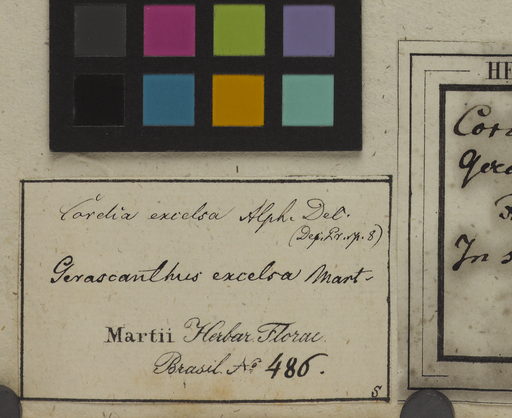 Cordia excelsa Alph. DeC.
(Dec. Pr. sp. 8)
Gerascanthus excelsa Mart.
Martii Herbar. Florae
Brasil. No 486.
S
HE
Cor
Gera
In s